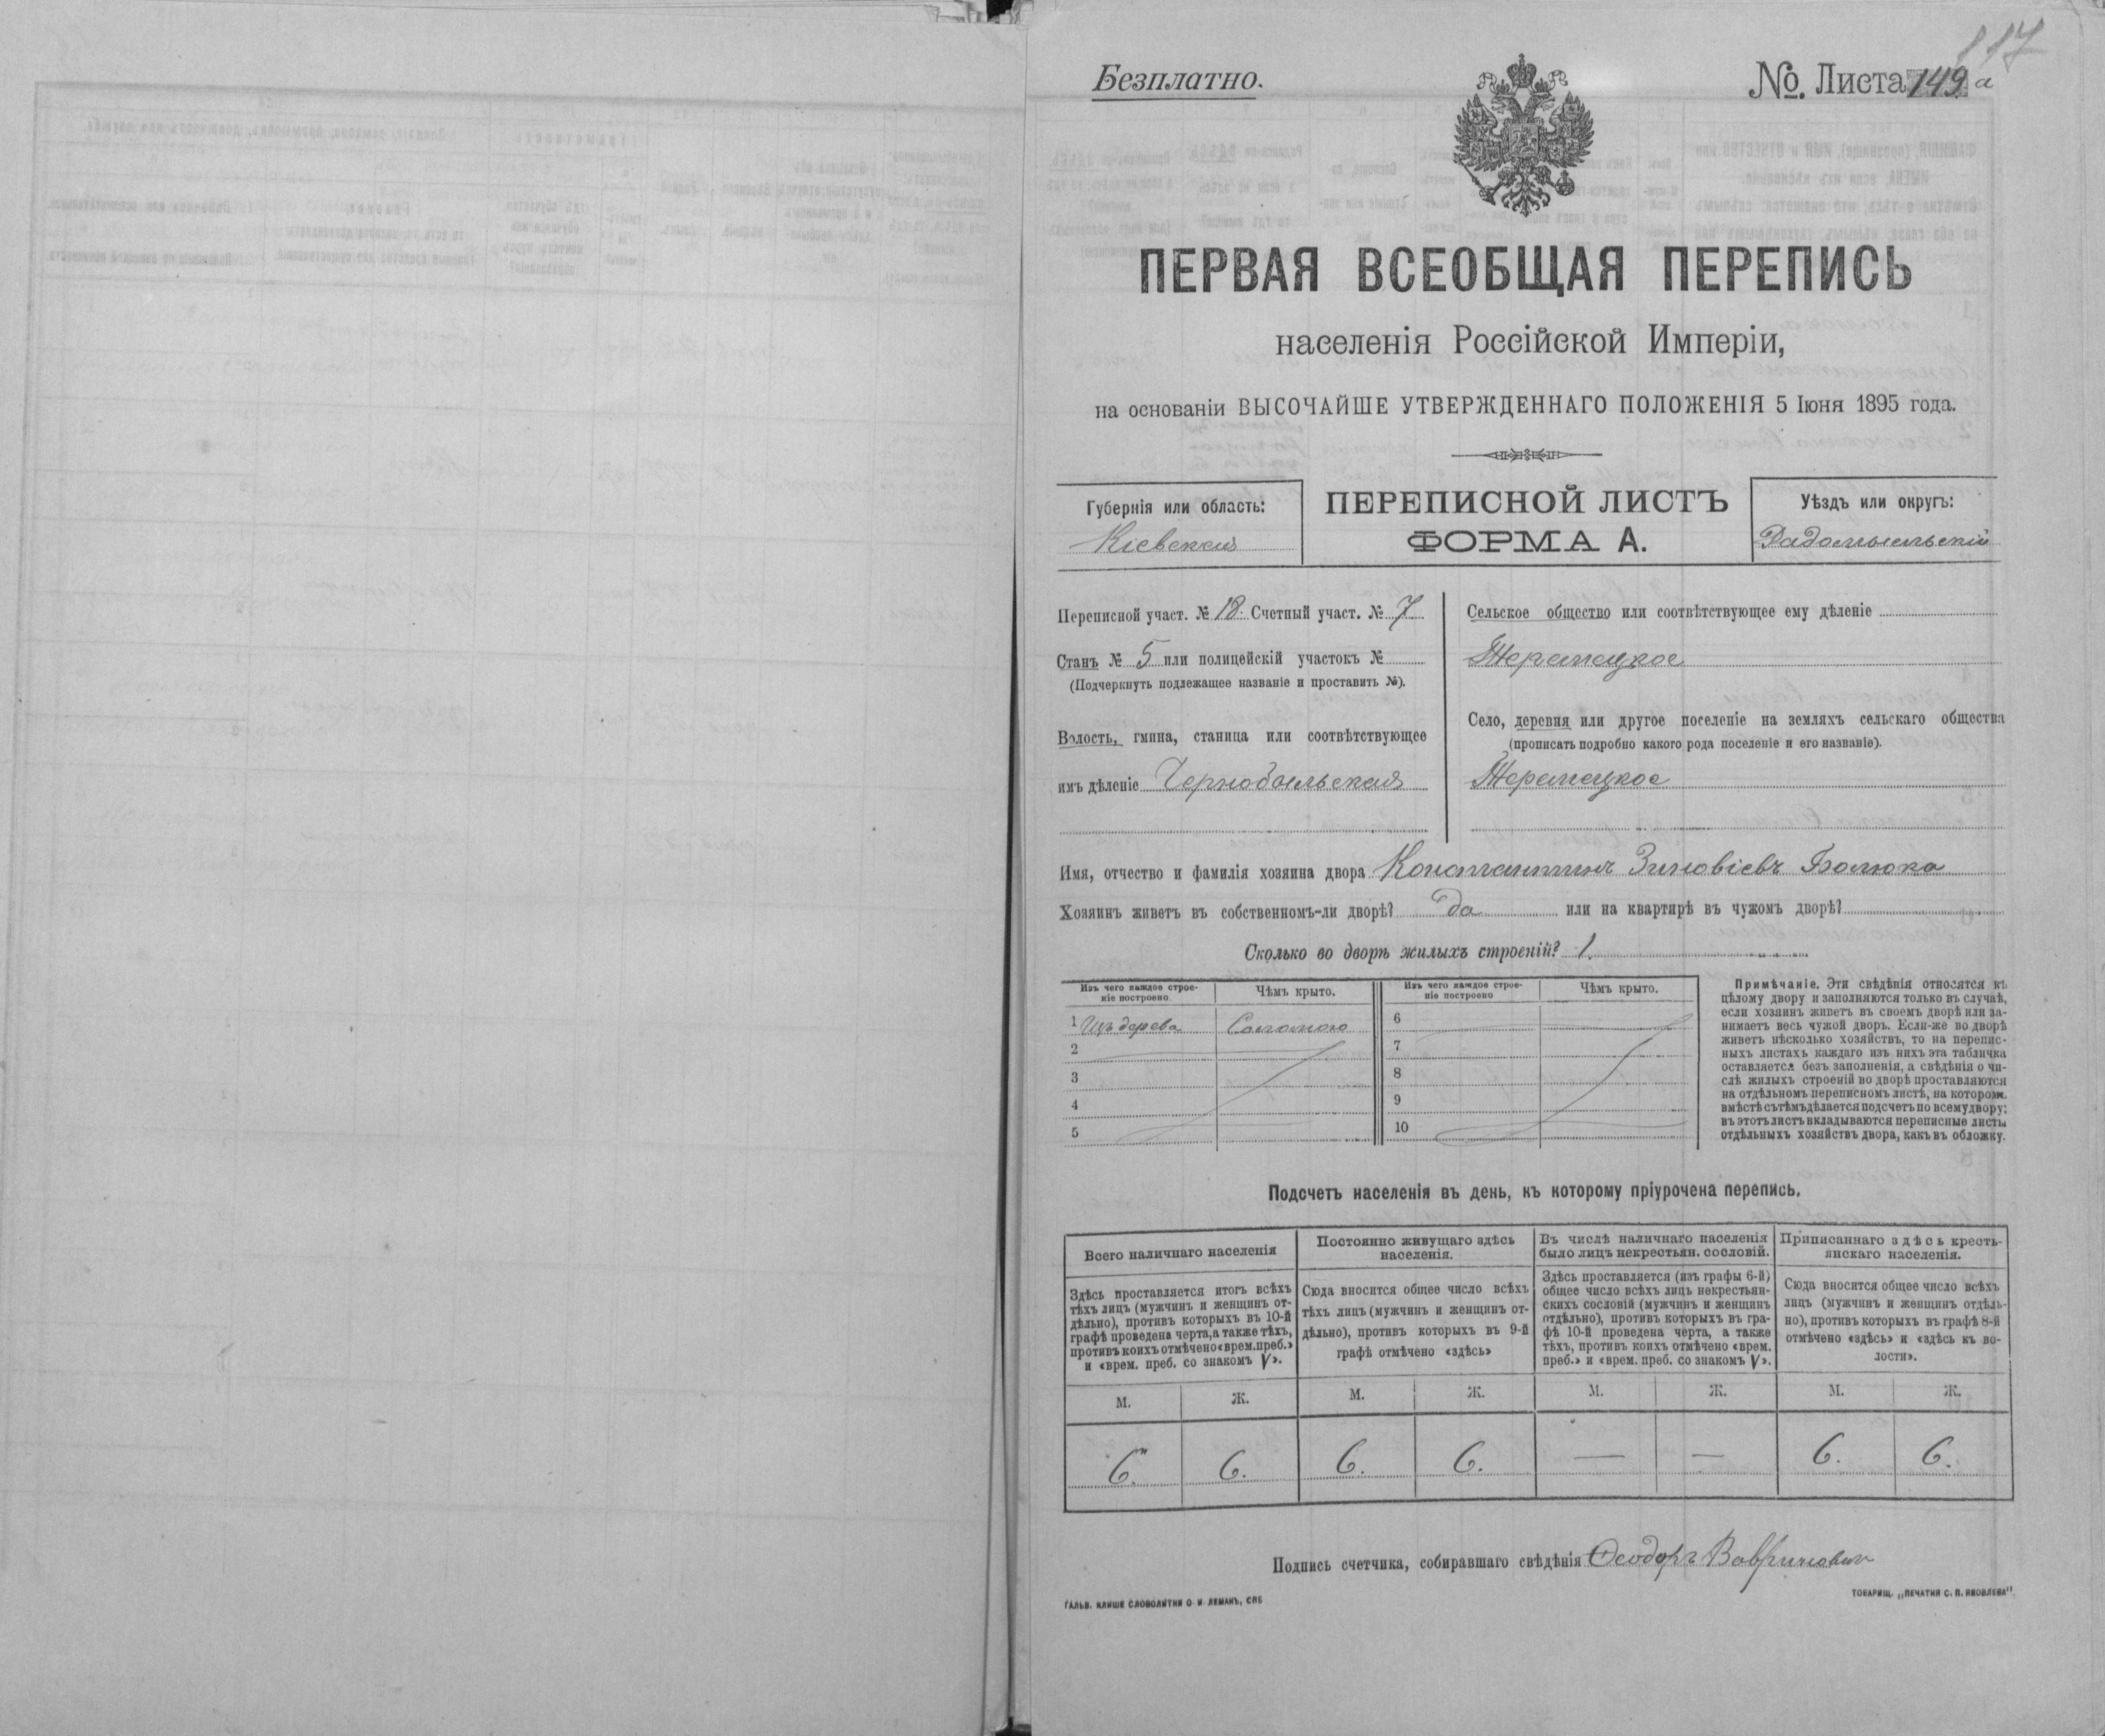 117
Безплатно.
№. Листа 149 а
ПЕРВАЯ ВСЕОБЩАЯ ПЕРЕПИСЬ
населенія Россійской Имперіи,
на основаніи ВЫСОЧАЙШЕ УТВЕРЖДЕННАГО ПОЛОЖЕНІЯ 5 Іюня 1895 года.
Губернія или область:
Кіевская
ПЕРЕПИСНОЙ ЛИСТЪ
ФОРМА А.
Уѣздъ или округъ:
Радомысльскій
Переписной участ. № 18. Счетный участ. № 7
Станъ № 5 или полицейскій участокъ №
(Подчеркнуть подлежащее названіе и проставить №).
Волость, гмина, станица или соотвѣтствующее
имъ дѣленіе Чернобыльская
Сельское общество или соотвѣтствующее ему дѣленіе
Теремецкое
Село, деревня или другое поселеніе на земляхъ сельскаго общества
(прописать подробно какого рода поселеніе и его названіе).
Теремецкое
Имя, отчество и фамилія хозяина двора Константинъ Зиновіевъ
Хозяинъ живетъ въ собственномъ-ли дворѣ? да или на квартирѣ въ чужомъ дворѣ?
Сколько во дворѣ жилыхъ строеній? 1.
Изъ чего каждое строе-
ніе построено
Чѣмъ крыто.
Изъ чего каждое строе-
ніе построено
Чѣмъ крыто.
1 Изъ дерева Соломою
2
3
4
5
6
7
8
9
10
Примѣчаніе. Эти свѣдѣнія относятся къ
цѣлому двору и заполняются только въ случаѣ,
если хозяинъ живетъ въ своемъ дворѣ или за-
нимаетъ весь чужой дворъ. Если-же во дворѣ
живетъ нѣсколько хозяйствъ, то на перепис-
ныхъ листахъ каждаго изъ нихъ эта табличка
оставляется безъ заполненія, а свѣдѣнія о чи-
слѣ жилыхъ строеній во дворѣ проставляются
на отдѣльномъ переписномъ листѣ, на которомъ
вмѣстѣ съ тѣмъ дѣлается подсчетъ по всему двору;
въ этотъ листъ вкладываются переписные листы
отдѣльныхъ хозяйствъ двора, какъ въ обложку.
Подсчетъ населенія въ день, къ которому пріурочена перепись.
Всего наличнаго населенія
Здѣсь проставляется итогъ всѣхъ
тѣхъ лицъ (мужчинъ и женщинъ от-
дѣльно), противъ которыхъ въ 10-й
графѣ проведена черта, а также тѣхъ,
противъ коихъ отмѣчено «врем. преб.»
и «врем. преб. со знакомъ V».
Постоянно живущаго здѣсь
населенія.
Сюда вносится общее число всѣхъ
тѣхъ лицъ (мужчинъ и женщинъ от-
дѣльно), противъ которыхъ въ 9-й
графѣ отмѣчено «здѣсь»
Въ числѣ наличнаго населенія
было лицъ некрестьян. сословій.
Здѣсь проставляется (изъ графы 6-й)
общее число всѣхъ лицъ некрестьян-
скихъ сословій (мужчинъ и женщинъ
отдѣльно), противъ которыхъ въ гра-
фѣ 10-й проведена черта, а также
тѣхъ, противъ коихъ отмѣчено «врем.
преб.» и «врем. преб. со знакомъ V».
Приписаннаго здѣсь кресть-
янскаго населенія.
Сюда вносится общее число всѣхъ
лицъ (мужчинъ и женщинъ отдѣль-
но), противъ которыхъ въ графѣ 8-й
отмѣчено «здѣсь» и «здѣсь къ во-
лости».
М. Ж. М. Ж. М. Ж. М. Ж.
6. 6. 6. 6. — — 6. 6.
Подпись счетчика, собиравшаго свѣдѣнія Ѳеодоръ
ГАЛЬВ. КЛИШЕ СЛОВОЛИТНИ О. И. ЛЕМАНЪ, СПБ
ТОВАРИЩ. „ПЕЧАТНЯ С. П. ЯКОВЛЕВА".